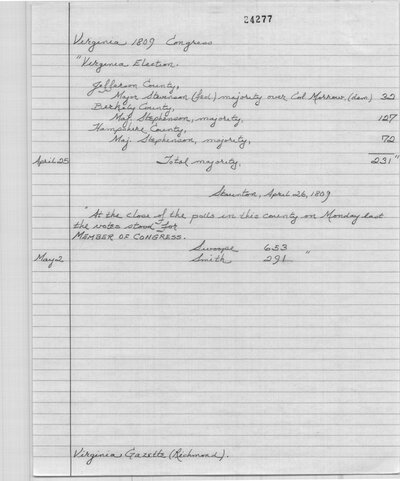 24277
Virginia 1809 Congress
"Virginia Election.
Jefferson County,
Major Stevenson (fed) majority over Col Morrow, (dem) 32
Berkely County,
Maj. Stephenson, majority, 127
Hampshire County,
Maj. Stephenson, majority, 72
April 25 Total majority, 231"
Staunton, April 26, 1809
"At the close of the polls in this county on Monday last
the votes stood For
MEMBER OF CONGRESS.
Swoope 653
May 2 Smith 291 "
Virginia Gazette (Richmond).